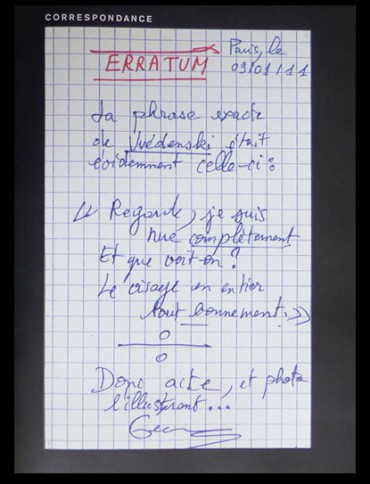 CORRESPONDANCE
ERRATUM
Paris, le
09/01/11
La phrase exacte
de Vvédenski était
évidemment celle-ci :
« Regarde, je suis
nue complètement
Et que voit-on ?
Le visage en entier
tout bonnement. »
Donc acte, et photo
l'illustrant...